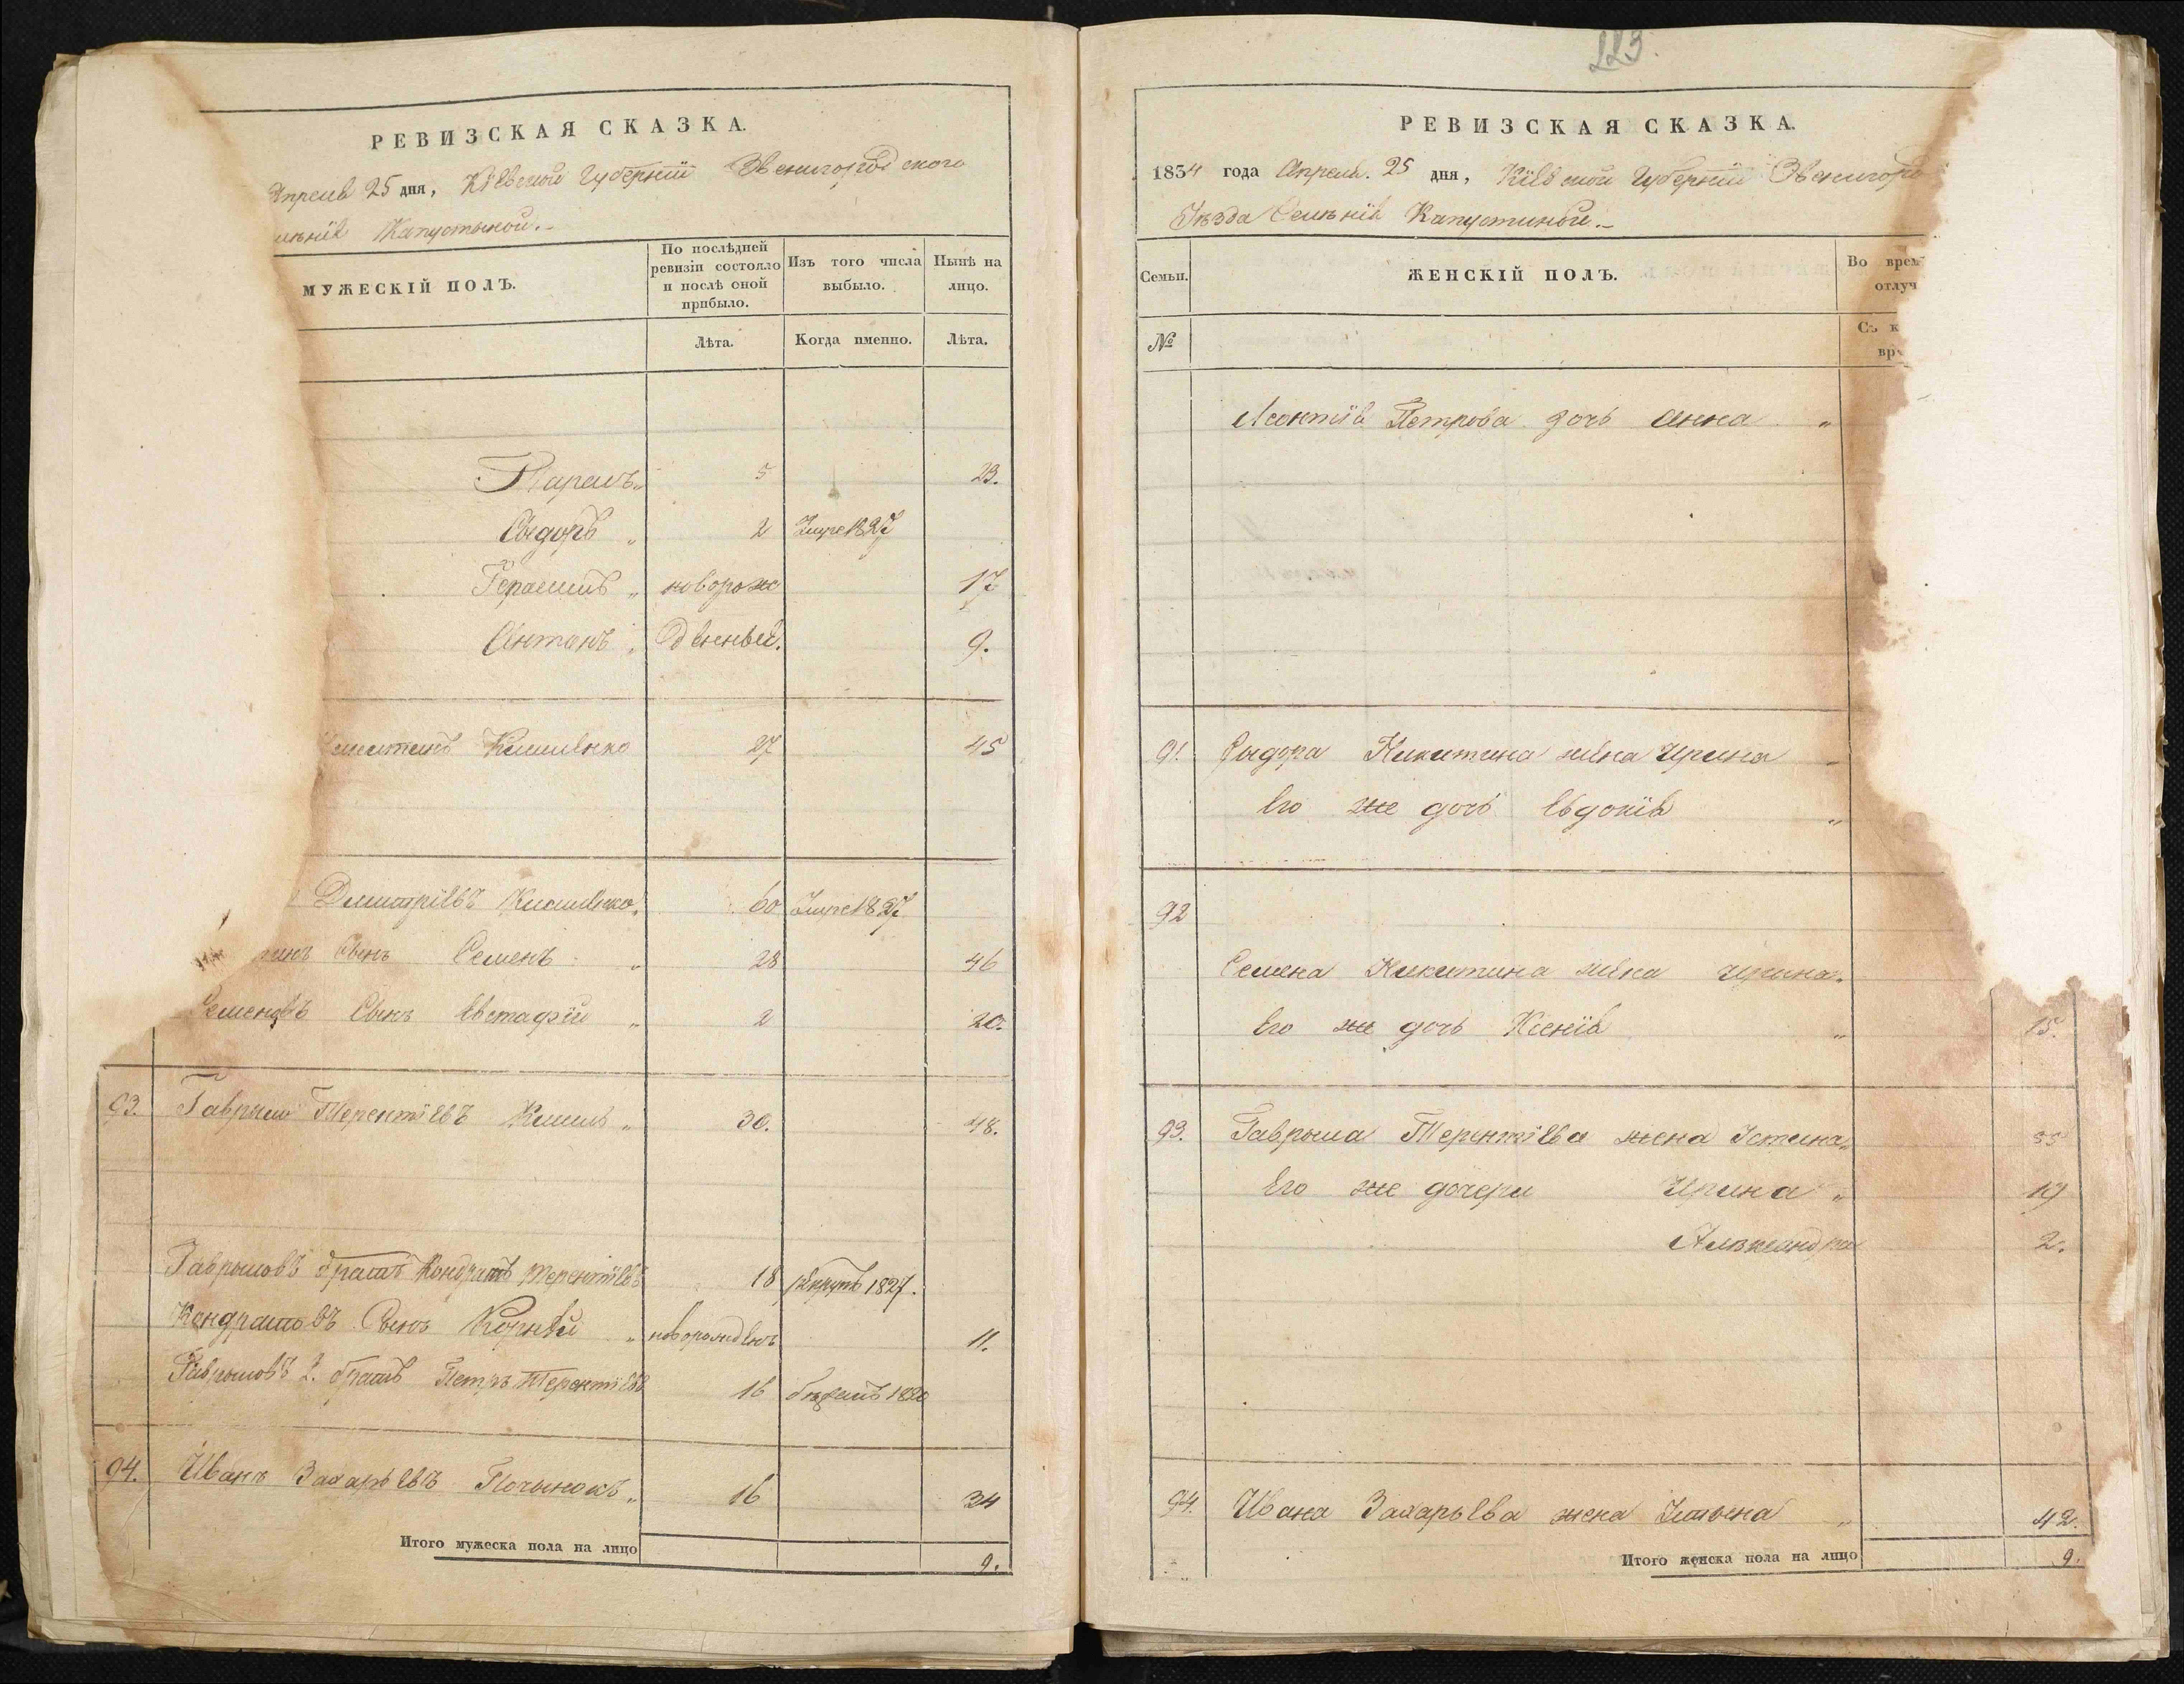 РЕВИЗСКАЯ СКАЗКА.
Апреля 25 дня, Кіевской Губерніи Звенигородского
Капустыной.
МУЖЕСКІЙ ПОЛЪ.
По послѣдней ревизіи состояло и послѣ оной прибыло.
Изъ того числа выбыло.
Нынѣ на лицо.
Лѣта.
Когда именно.
Лѣта.
5 23.
Сыдоръ „ 2 Умре 1837
Герасимъ „ новорож 17
Антонъ „ денные. 9.
27 45
Дмитріевъ 60 Умре 1837
Сынъ Семенъ „ 28 46
Семеновъ Сынъ Евстафій „ 2 20.
93. Гаврыло Терентіевъ „ 30. 48.
Гаврыловъ братъ Кондратъ Терентіевъ 18 рекрутъ 1827.
Кондратовъ Сынъ Корнѣй „ новорожденъ 11.
Гаврыловъ 2. братъ Петръ Терентіевъ 16 бѣжалъ
94. Иванъ Захарьевъ Почынокъ „ 16 34
Итого мужеска пола на лицо 9.
223.
РЕВИЗСКАЯ СКАЗКА.
1834 года Апреля. 25 дня, Кіевской Губерніи Звенигоро
Уѣзда Селенія Капустиной.
Семьи.
ЖЕНСКІЙ ПОЛЪ.
Во врем
отлуч
№
Съ к
вр
Леонтія Петрова дочь Анна „
91. Сыдора Никитина жена Ирина
Его же дочь Евдокія „
92
Семена Никитина жена Ирина.
Его же дочь Ксенія „ 15.
93. Гаврыла Терентіева жена Устина
Его же дочери Ирина „ 19
Александра 2.
94. Ивана Захарьева жена „ 42.
Итого женска пола на лицо 9.